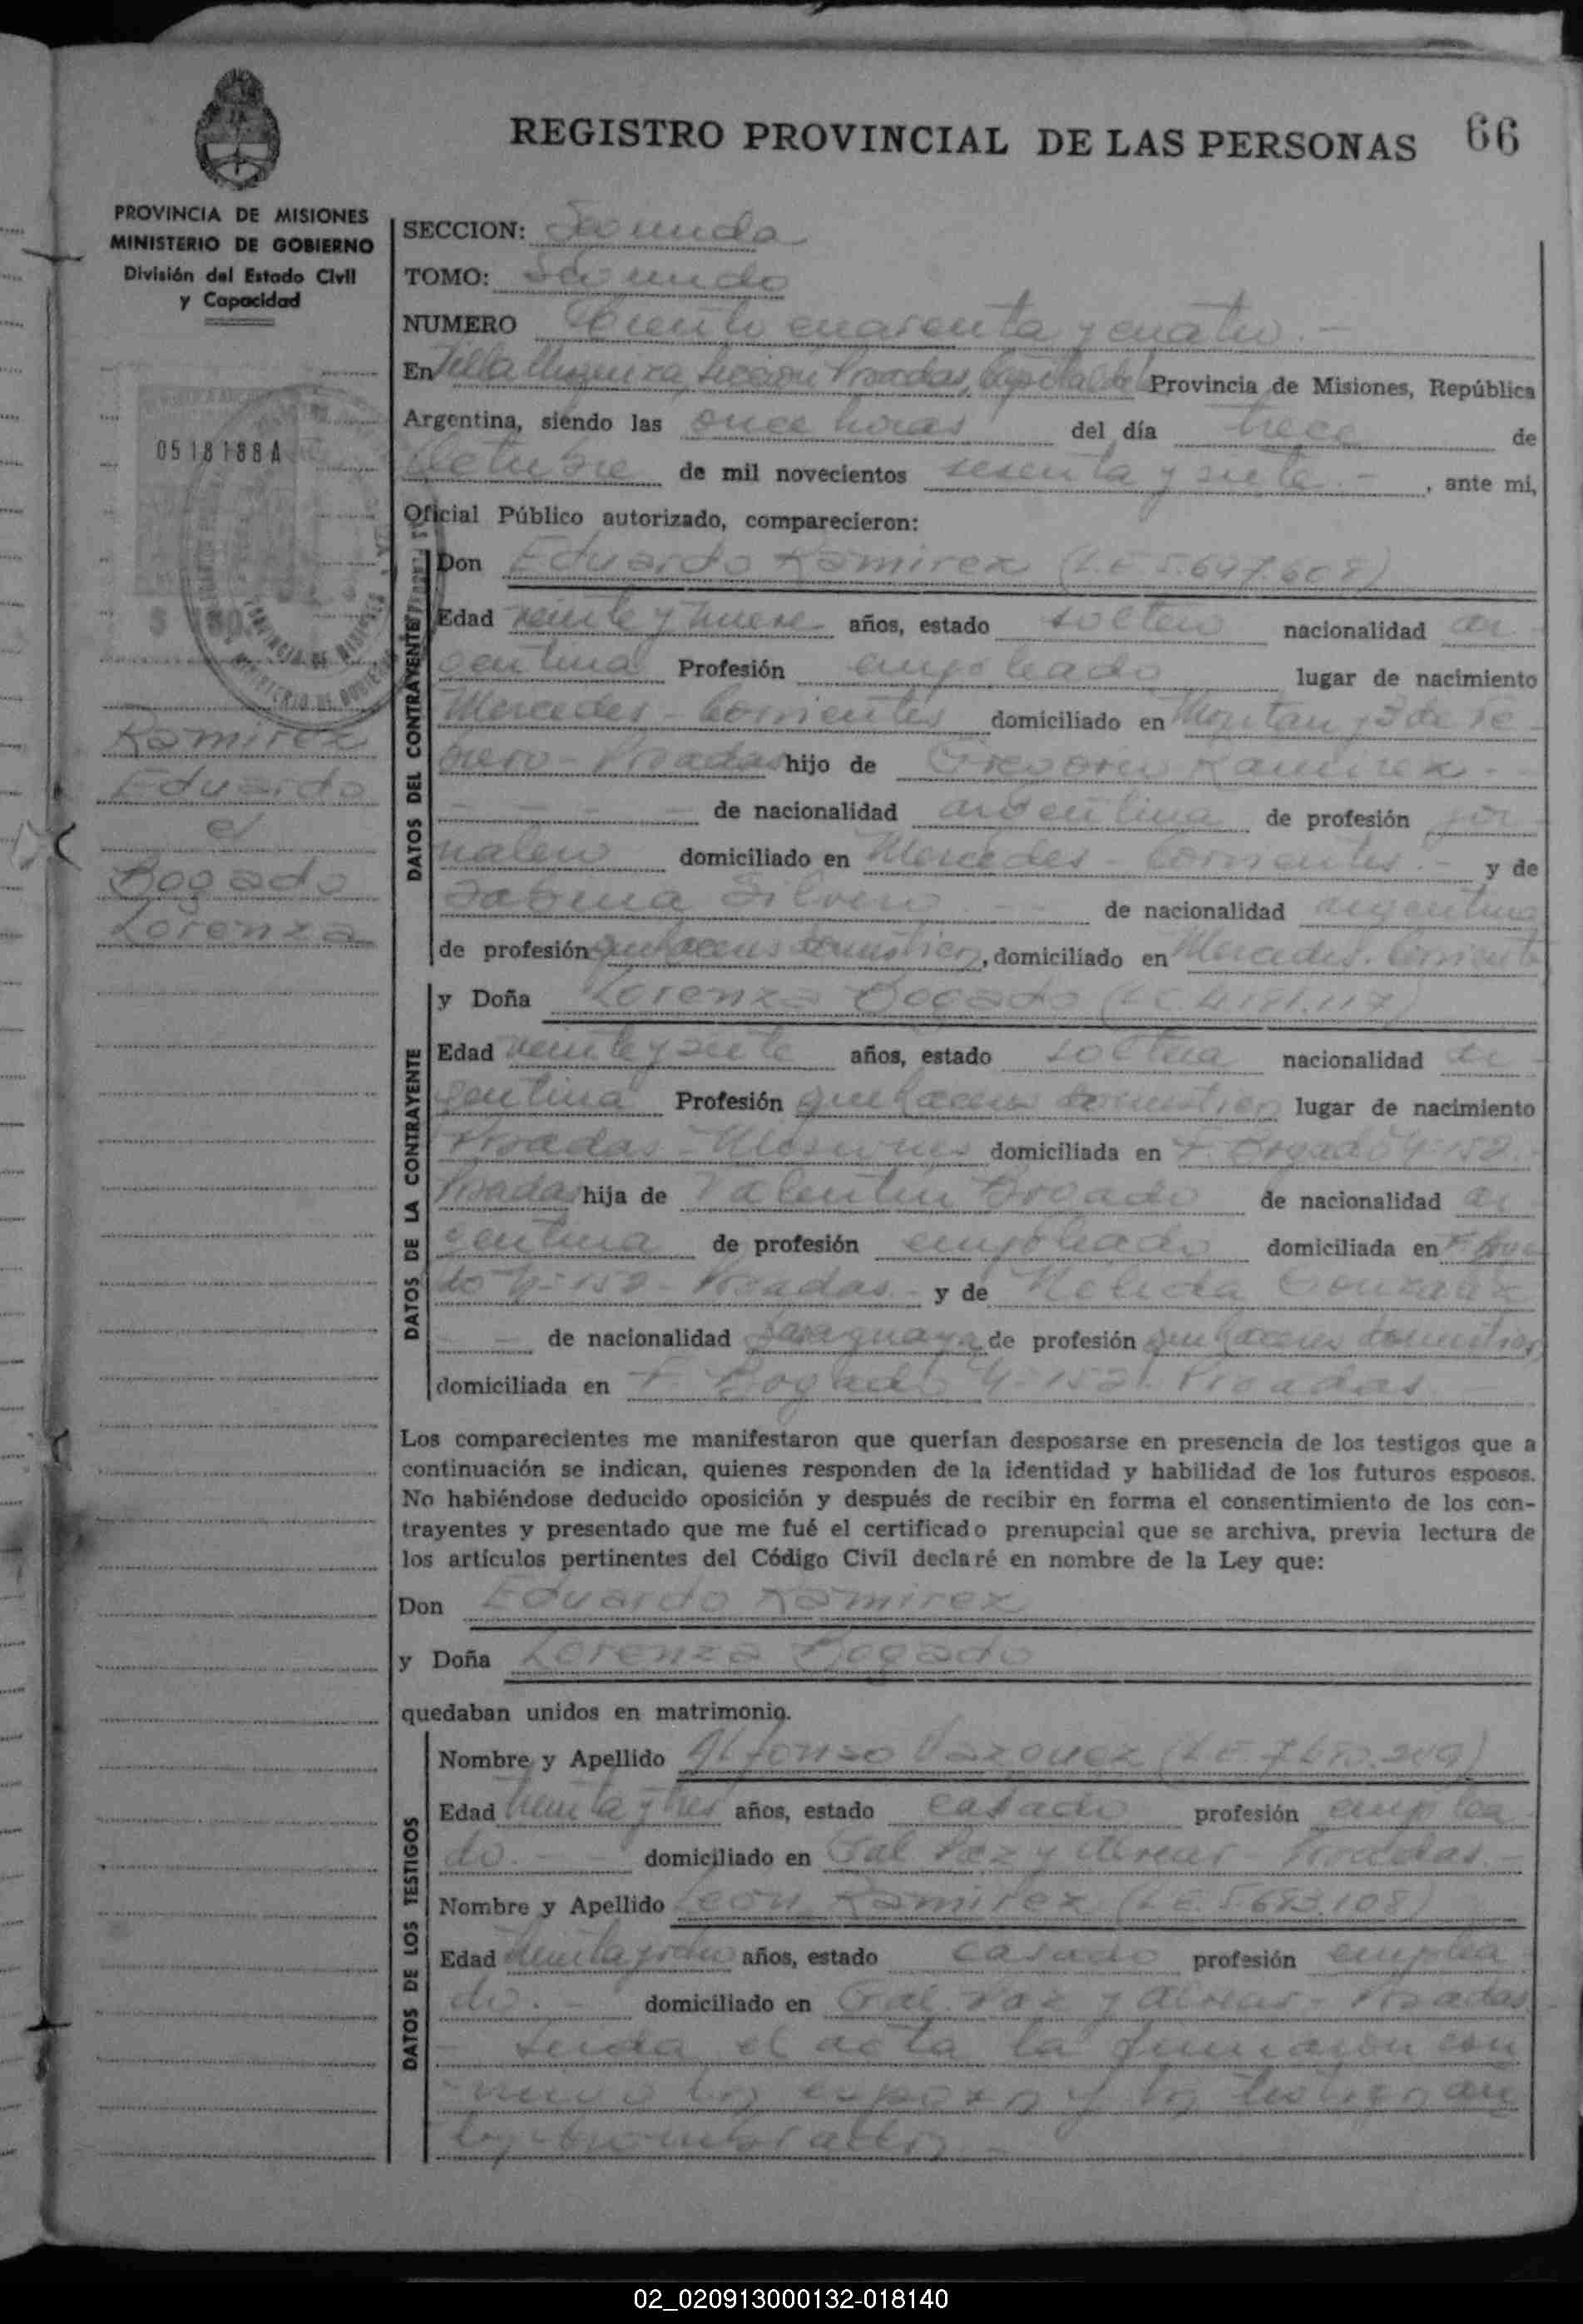 REGISTRO PROVINCIAL DE LAS PERSONAS 66
PROVINCIA DE MISIONES
MINISTERIO DE GOBIERNO
División del Estado Civil
y Capacidad
0518188A
PROVINCIA DE MISIONES
MINISTERIO DE GOBIERNO
Ramirez
Eduardo
c/
Bogado
Lorenza
SECCION: Segunda
TOMO: Segundo
NUMERO Ciento cuarenta y cuatro.-
En Villa Urquiza, Sección Posadas, Capital de la Provincia de Misiones, República
Argentina, siendo las once horas del día trece de
Octubre de mil novecientos sesenta y siete.- , ante mi,
Oficial Público autorizado, comparecieron:
DATOS DEL CONTRAYENTE
Don Eduardo Ramirez (L.E 5.697.608)
Edad veinte y nueve años, estado soltero nacionalidad ar
gentina Profesión empleado lugar de nacimiento
Mercedes - Corrientes domiciliado en 3 de Fe
brero - Posadas hijo de Gregorio Ramirez.-
de nacionalidad argentina de profesión jor
nalero domiciliado en Mercedes Corrientes.- y de
Sabina Silvero de nacionalidad argentina
de profesión quehaceres domésticos, domiciliado en Mercedes. Corrientes
DATOS DE LA CONTRAYENTE
y Doña Lorenza Bogado (L.C. 4.181.117)
Edad veinte y siete años, estado soltera nacionalidad ar
gentina Profesión quehaceres domésticos lugar de nacimiento
Posadas - Misiones domiciliada en F. Bogado 4-152.
Posadas hija de Valentín Bogado de nacionalidad ar
gentina de profesión empleado domiciliada en F. Boga
do 4-152 - Posadas - y de Nelida Gonzalez
de nacionalidad paraguaya de profesión quehaceres domésticos
domiciliada en F. Bogado 4-152. Posadas
Los comparecientes me manifestaron que querían desposarse en presencia de los testigos que a
continuación se indican, quienes responden de la identidad y habilidad de los futuros esposos.
No habiéndose deducido oposición y después de recibir en forma el consentimiento de los con-
trayentes y presentado que me fué el certificado prenupcial que se archiva, previa lectura de
los artículos pertinentes del Código Civil declaré en nombre de la Ley que:
Don Eduardo Ramirez
y Doña Lorenza Bogado
quedaban unidos en matrimonio.
DATOS DE LOS TESTIGOS
Nombre y Apellido Alfonso Vazquez (L.E.
Edad treinta y tres años, estado casado profesión emplea
do.- domiciliado en Gral Paz y Alvear - Posadas.-
Nombre y Apellido León Ramirez (L.E. 5.683.108)
Edad treinta y ocho años, estado casado profesión emplea
do.- domiciliado en Gral. Paz y Alvear - Posadas
- Leida el acta la firmaron con
migo los esposos y los testigos an
tes nombrados.-
02_020913000132-018140